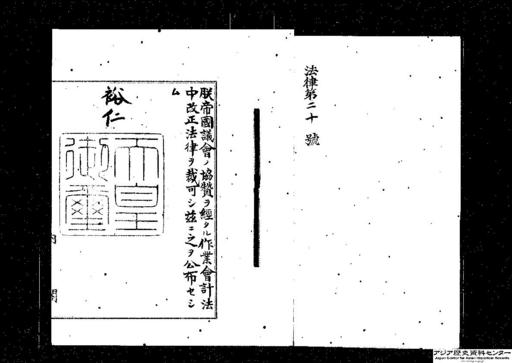 法律第二十號
朕帝國議會ノ協贊ヲ經タル作業會計法
中改正法律ヲ裁可シ玆ニ之ヲ公布セシ
ム
裕仁
天皇
御璽
内
閣
アジア歴史資料センター
Japan Center for Asian Historical Records